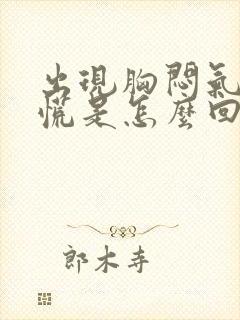 出現胸悶氣
慌是怎麼回
郎木寺